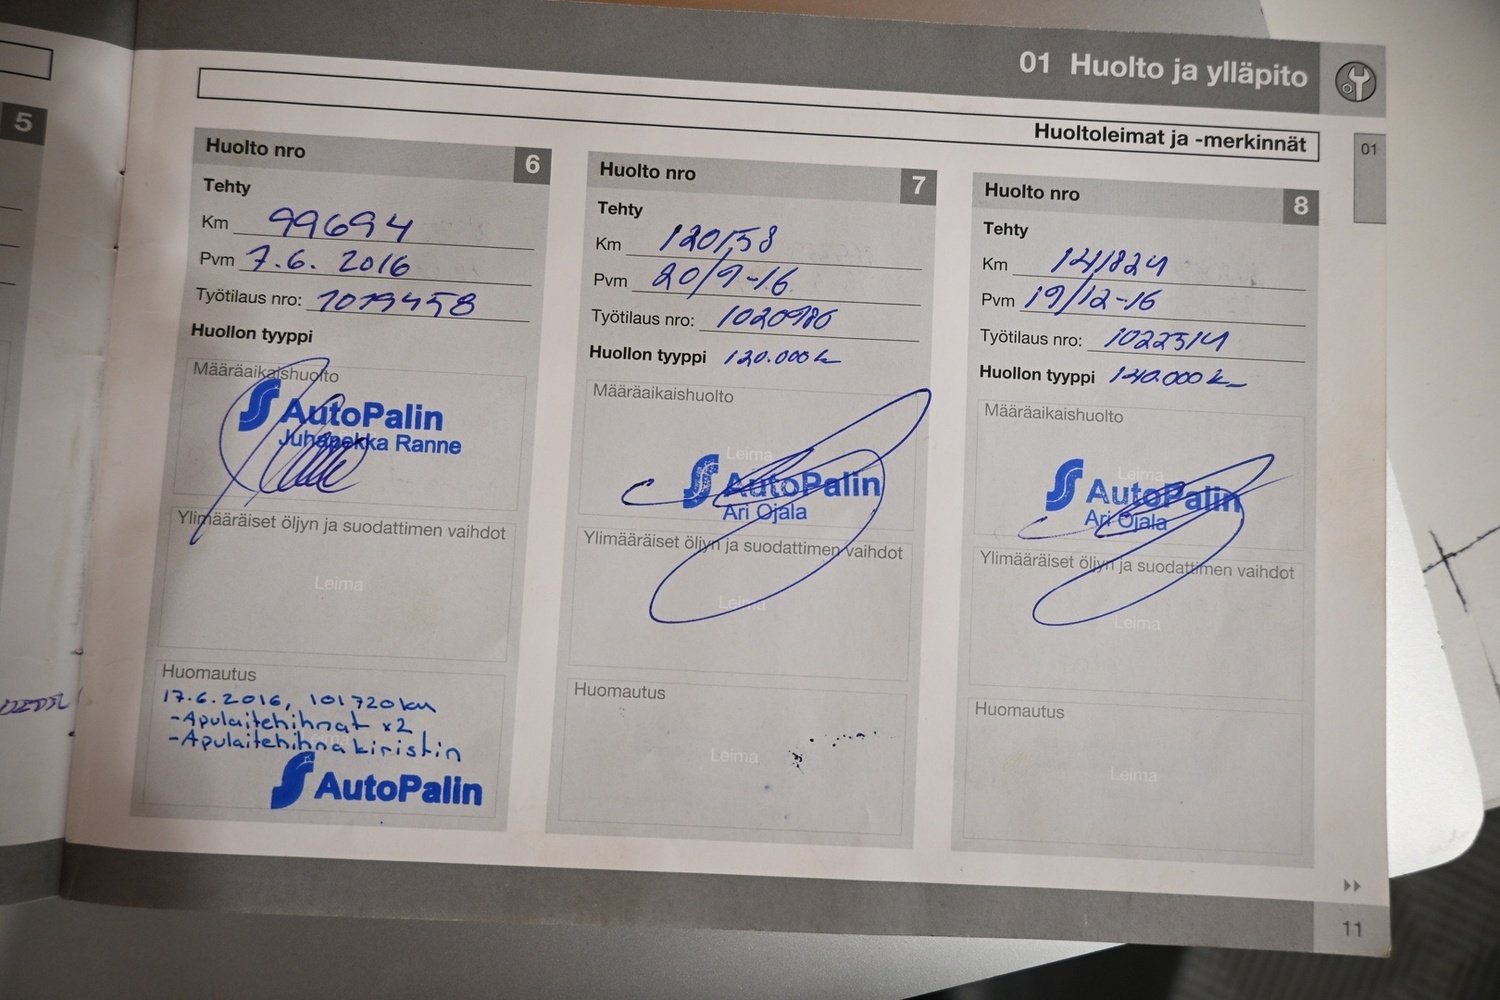 01 Huolto ja ylläpito
Huoltoleimat ja -merkinnät
01
5
Huolto nro 6
Tehty
Km 99694
Pvm 7.6. 2016
Työtilaus nro: 1019458
Huollon tyyppi
Määräaikaishuolto
AutoPalin
Juhapekka Ranne
Ylimääräiset öljyn ja suodattimen vaihdot
Leima
Huomautus
17.6.2016, 101720km
-Apulaitehihnat x2
-Apulaitehihnakiristin
AutoPalin
Huolto nro 7
Tehty
Km 120158
Pvm 20/9-16
Työtilaus nro: 1020986
Huollon tyyppi 120.000k
Määräaikaishuolto
Leima
AutoPalin
Ari Ojala
Ylimääräiset öljyn ja suodattimen vaihdot
Leima
Huomautus
Leima
Huolto nro 8
Tehty
Km 141824
Pvm 19/12-16
Työtilaus nro: 1022514
Huollon tyyppi 140.000k
Määräaikaishuolto
Leima
AutoPalin
Ari Ojala
Ylimääräiset öljyn ja suodattimen vaihdot
Leima
Huomautus
Leima
11